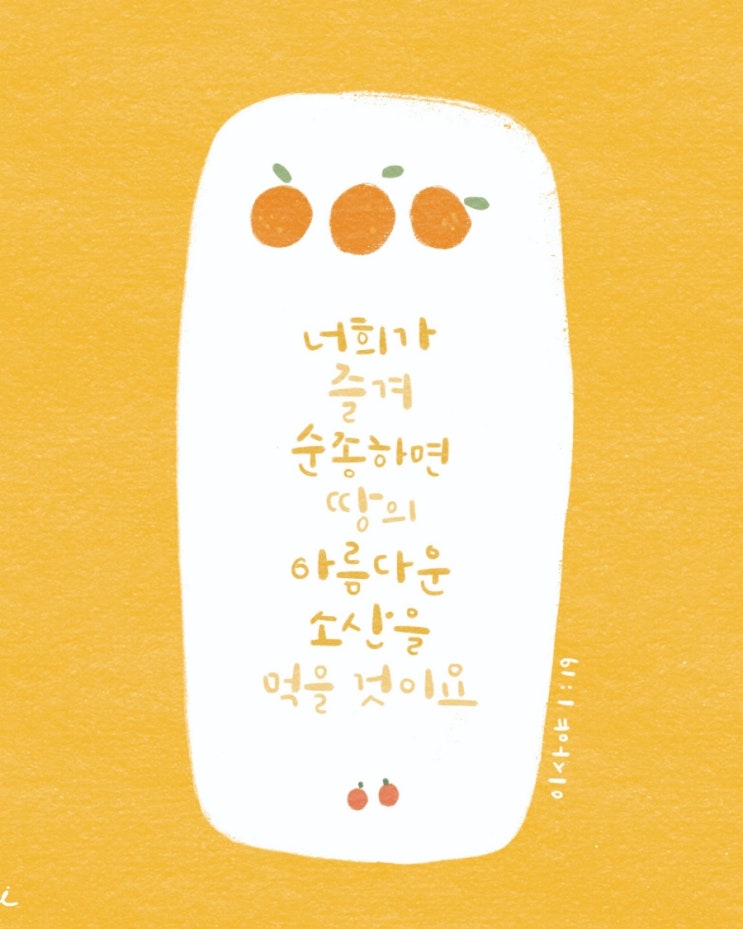 너희가
즐겨
순종하면
땅의
아름다운
소산을
먹을 것이요
이사야 1:19